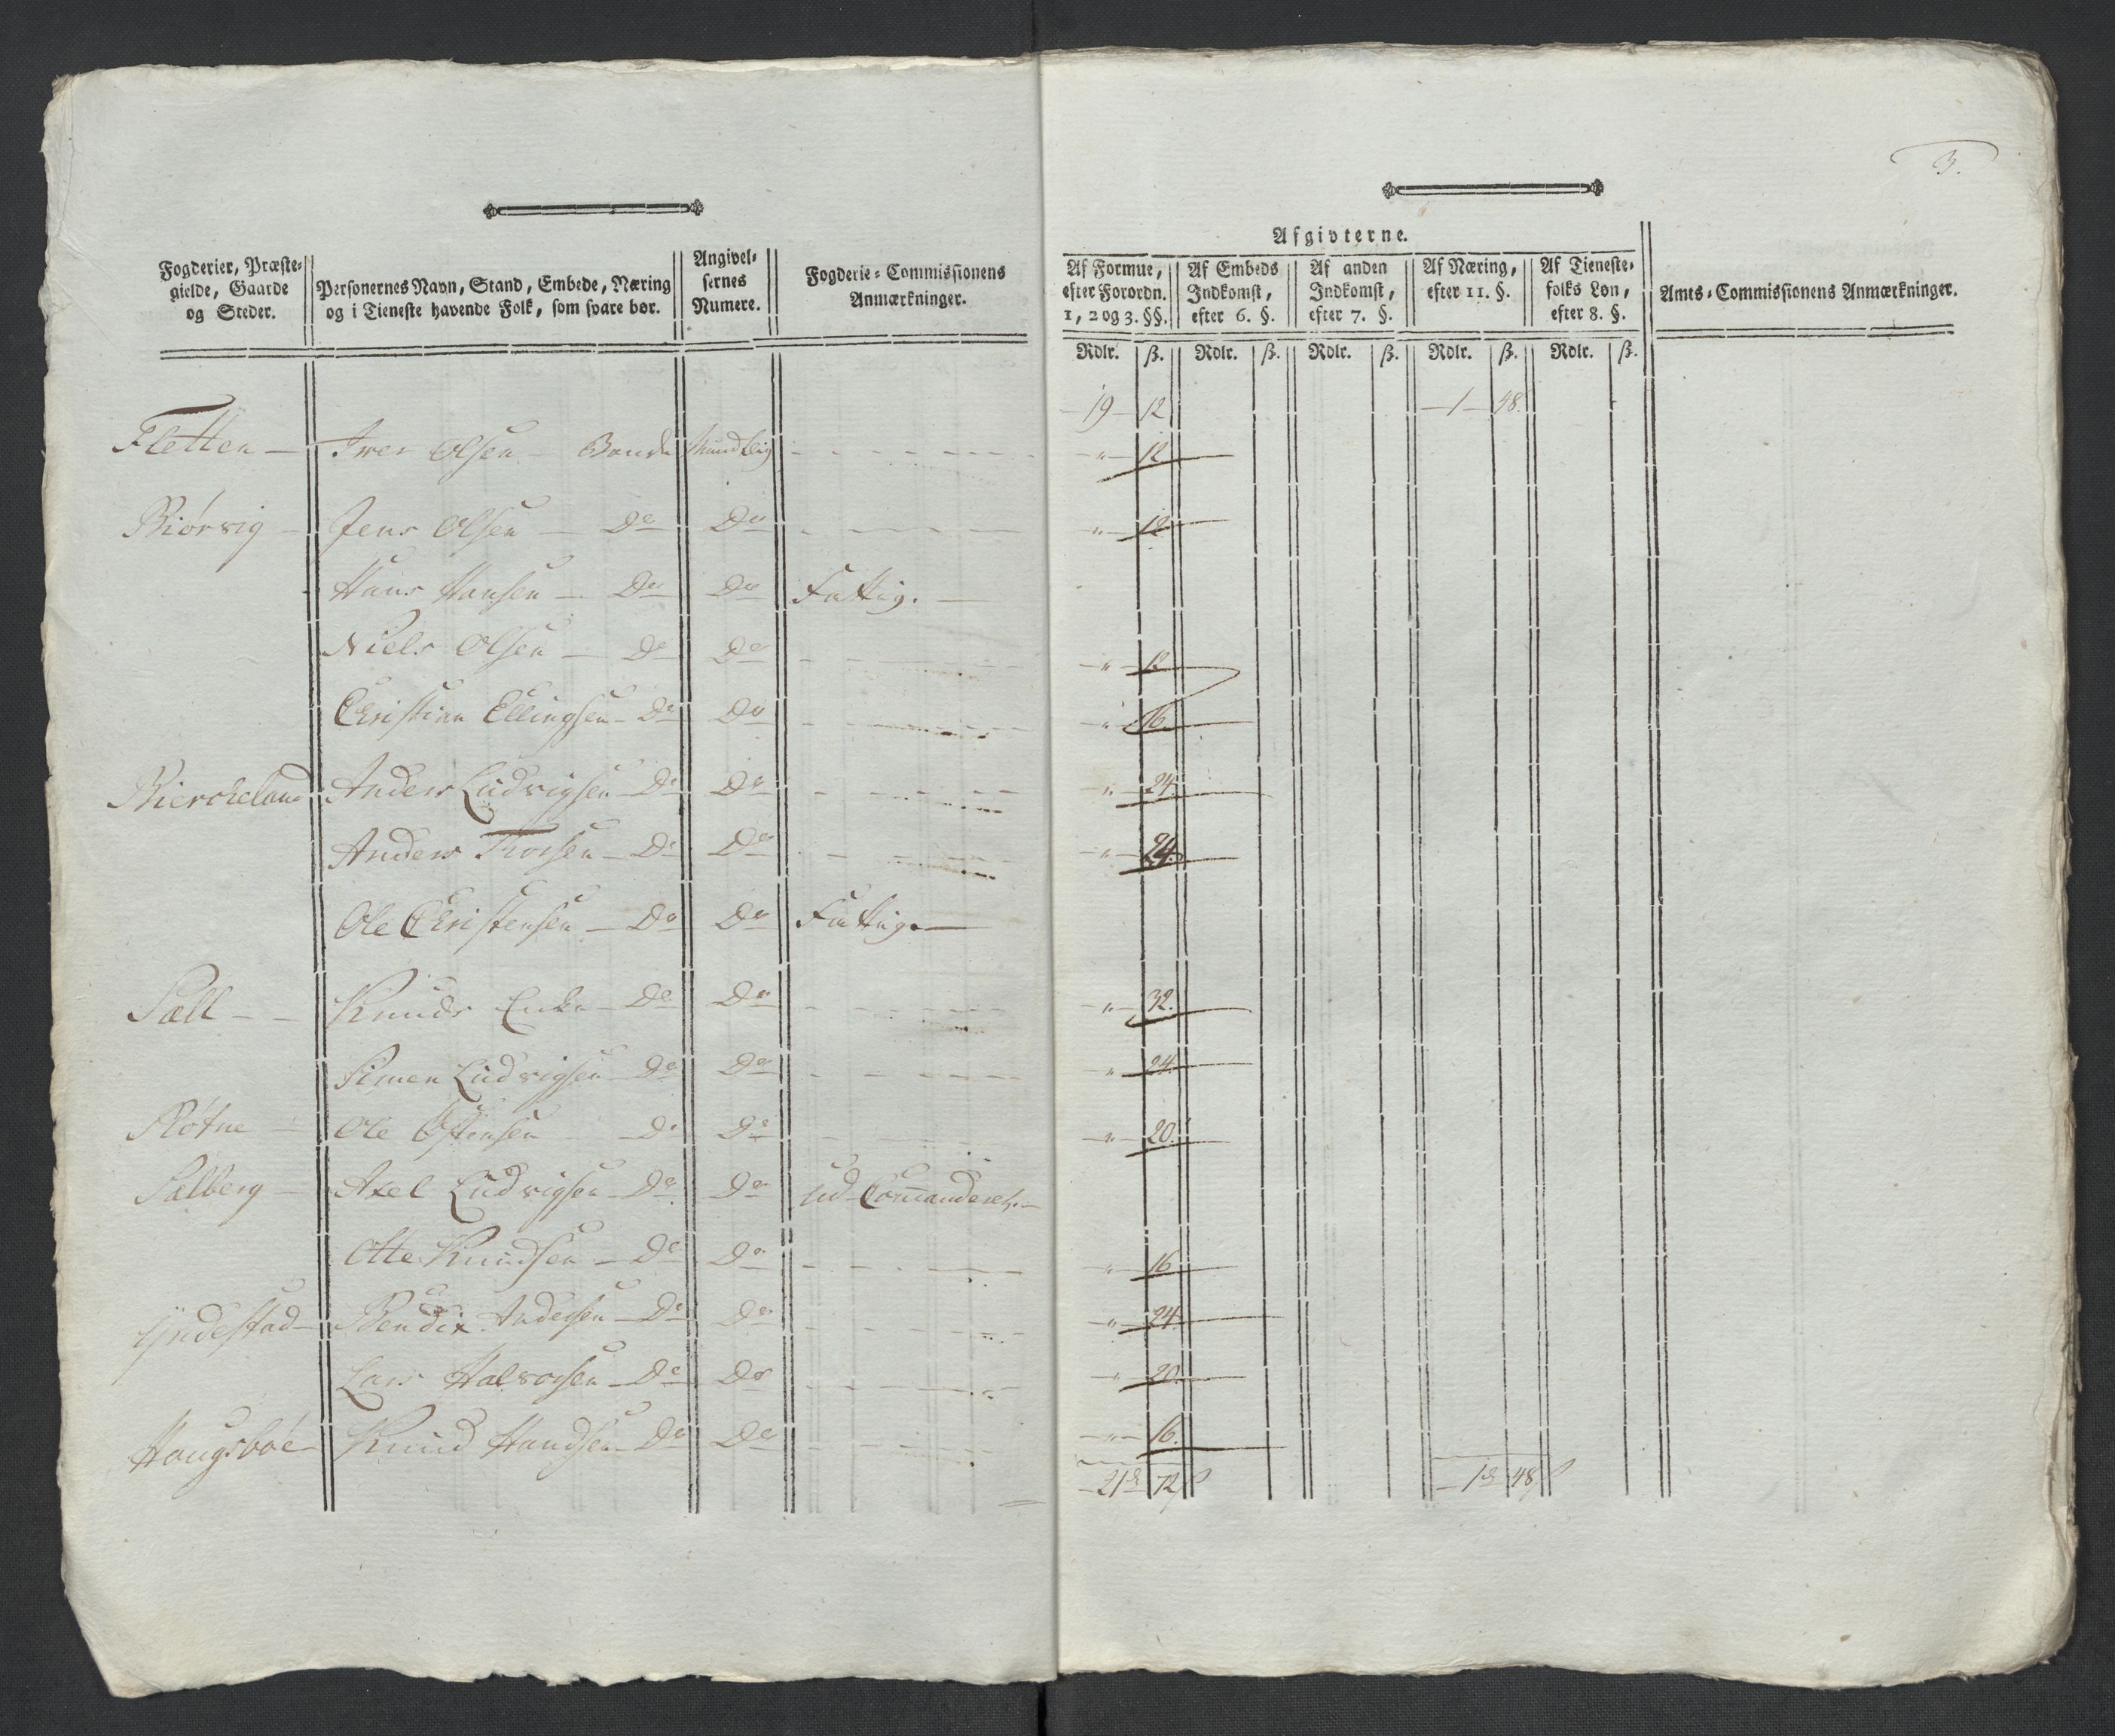 3.
Afgivterne.
Fogderier, Præste-
gielde, Gaarde
og Steder.
Personernes Navn, Stand, Embede, Næring
og i Tieneste havende Folk, som svare bør.
Angivel-
sernes
Numere.
Fogderie-Commissionens
Anmærkninger.
Af Formue,
efter Forordn.
1, 2 og 3. §§.
Af Embeds
Indkomst,
efter 6. §.
Af anden
Indkomst,
efter 7. §.
Af Næring,
efter 11. §.
Af Tieneste-
folks Løn,
efter 8. §.
Amts-Commissionens Anmærkninger.
Rdlr. ß. Rdlr. ß. Rdlr. ß. Rdlr. ß. Rdlr. ß.
19 12 1 48.
Fletten — Iver Olsen Bonde Mundtlig " 12
Biørvig — Jens Olsen — Do Do " 12
Hans Hansen — Do Do Fattig. —
Niels Olsen — Do Do " 12
Christian Ellingsen — Do Do " 16
Bierckeland Anders Ludvigsen — Do Do " 24
Anders Thorsen — Do Do " 24.
Ole Christensen — Do Do Fattig. —
Sæll — Knuds Enke — Do Do " 32.
Simen Ludvigsen — Do Do " 24
Røtne — Ole Østensen — Do Do " 20.
Sælberg — Axel Ludvigsen — Do Do Ud Commanderet. —
Otte Knudsen — Do Do " 16
Yndestad — Bendix Andersen — Do Do " 24
Lars Halvorsen — Do Do " 20.
Haugsbøe — Knud Handsen — Do Do " 16.
21 72 1 48